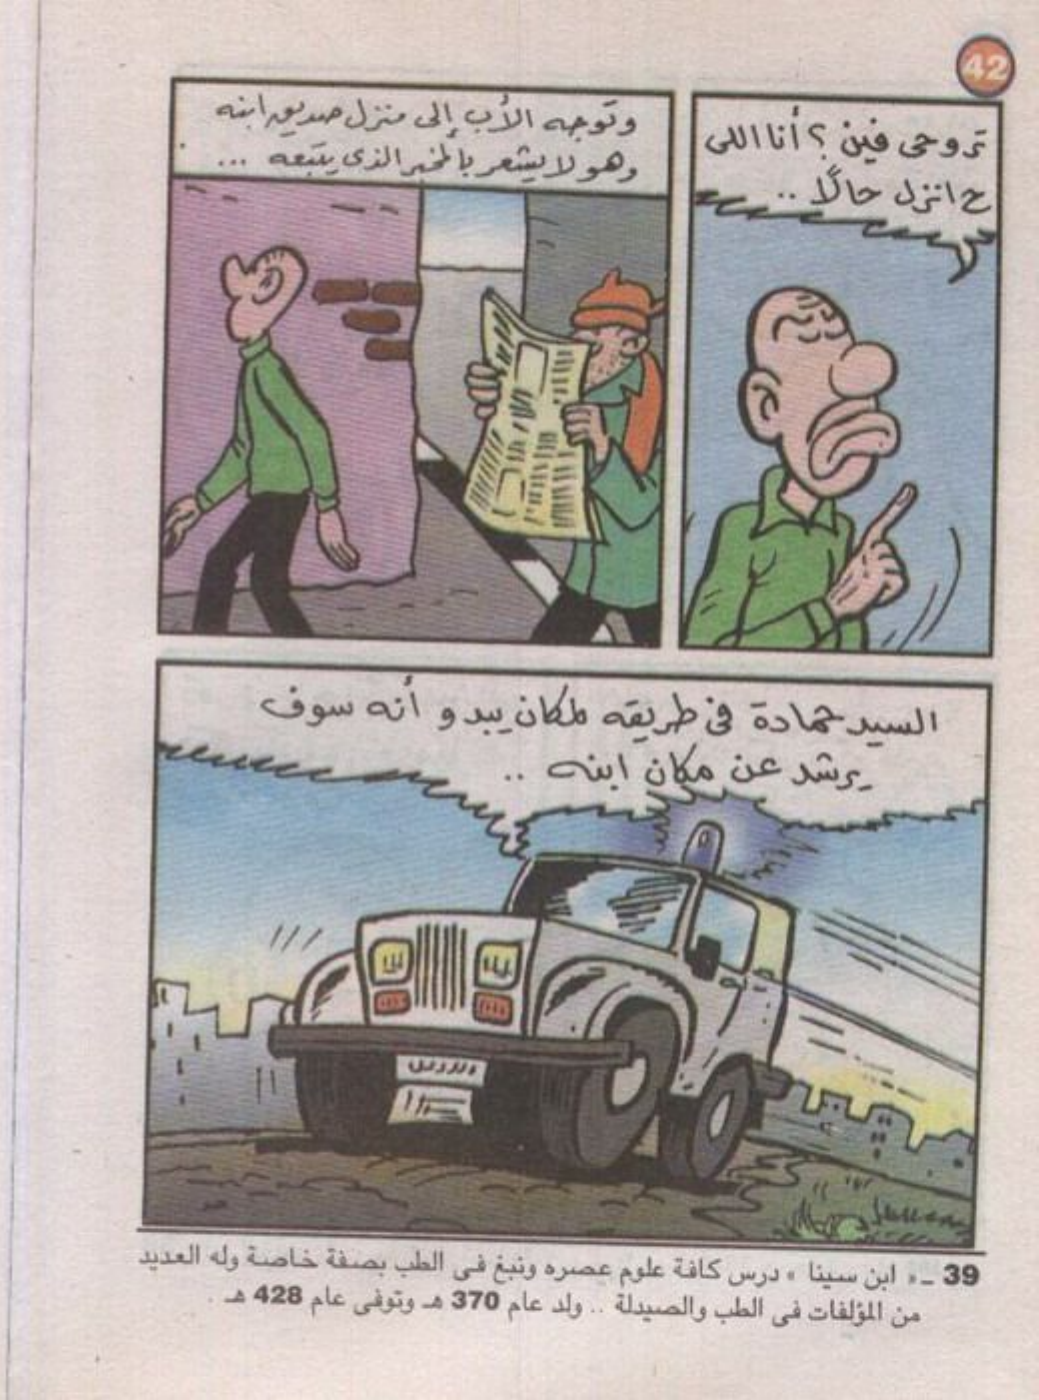 42
تروحى فين؟ أنا اللى
ح انزل حالًا ..
وتوجه الأب إلى منزل صديق ابنه
وهو لا يشعر بالمخبر الذى يتبعه ...
السيد حمادة فى طريقه لمكان يبدو أنه سوف
يرشد عن مكان ابنه ..
39 ــ « ابن سينا » درس كافة علوم عصره ونبغ فى الطب بصفة خاصة وله العديد
من المؤلفات فى الطب والصيدلة .. ولد عام 370 هـ وتوفى عام 428 هـ .